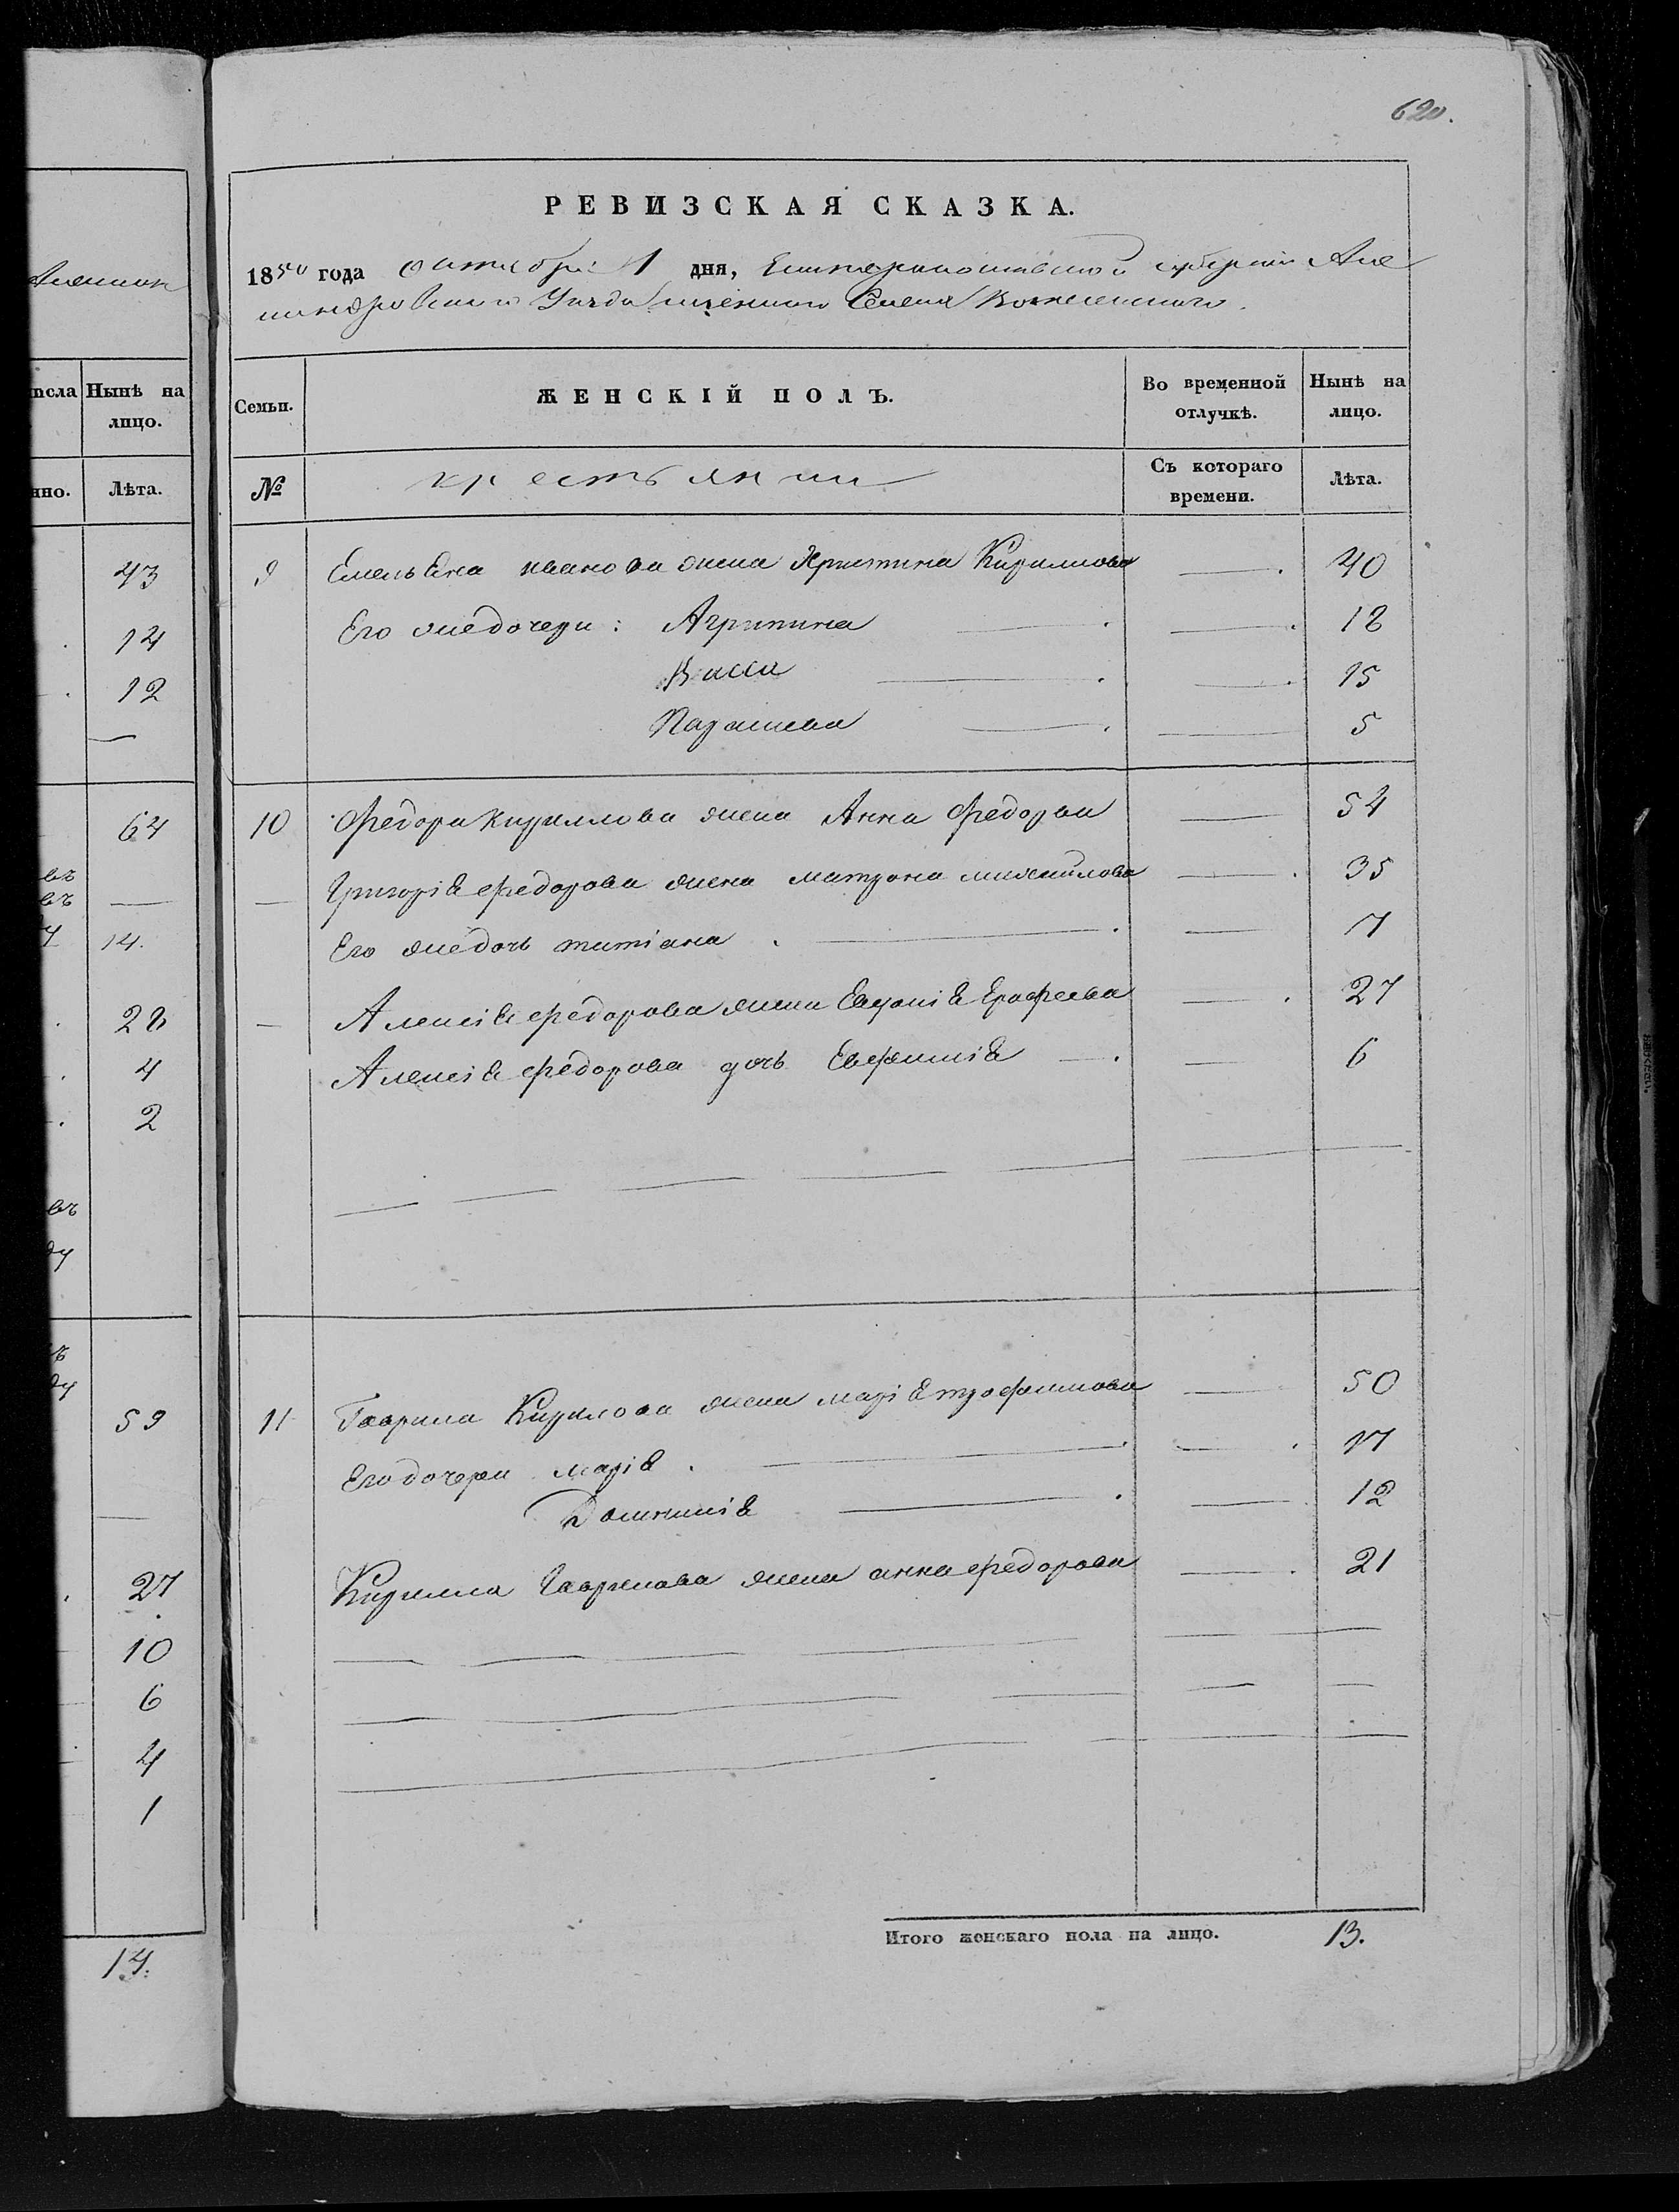 620.
РЕВИЗСКАЯ СКАЗКА.
1850 года октября 1 дня, Екатеринославской губернiи Але
ксандровскаго Уезда казеннаго Селения Вознесенскаго.
Семьи.
ЖЕНСКIЙ ПОЛЪ.
Во временной отлучкѣ.
Нынѣ на лицо.
№
крестьянки
Съ котораго времени.
Лѣта.
9 Емельяна иванова жена Христина Кирилова 40
Его же дочери: Агрипина 18
Васса 15
Параскева 5
10 Федора кириллова жена Анна Федорва 54
Григорiя федорова жена матрона михайлова 35
Его же дочь татiана 7
Алексiя федорова жена Евдокiя Ерофеева 27
Алексiя федорова дочь Евфимiя 6
11 Гаврила Кирилова жена марiя трофимова 50
Его дочери марiя 17
Домникiя 12
Кирилла Гаврилова жена анна федорова 21
Итого женскаго пола на лицо. 13.
псла
Нынѣ на лицо.
нно.
Лѣта.
43
14
12
64
въ
въ
14.
28
4
2
въ
ду
ду
59
27
10
6
4
1
14.